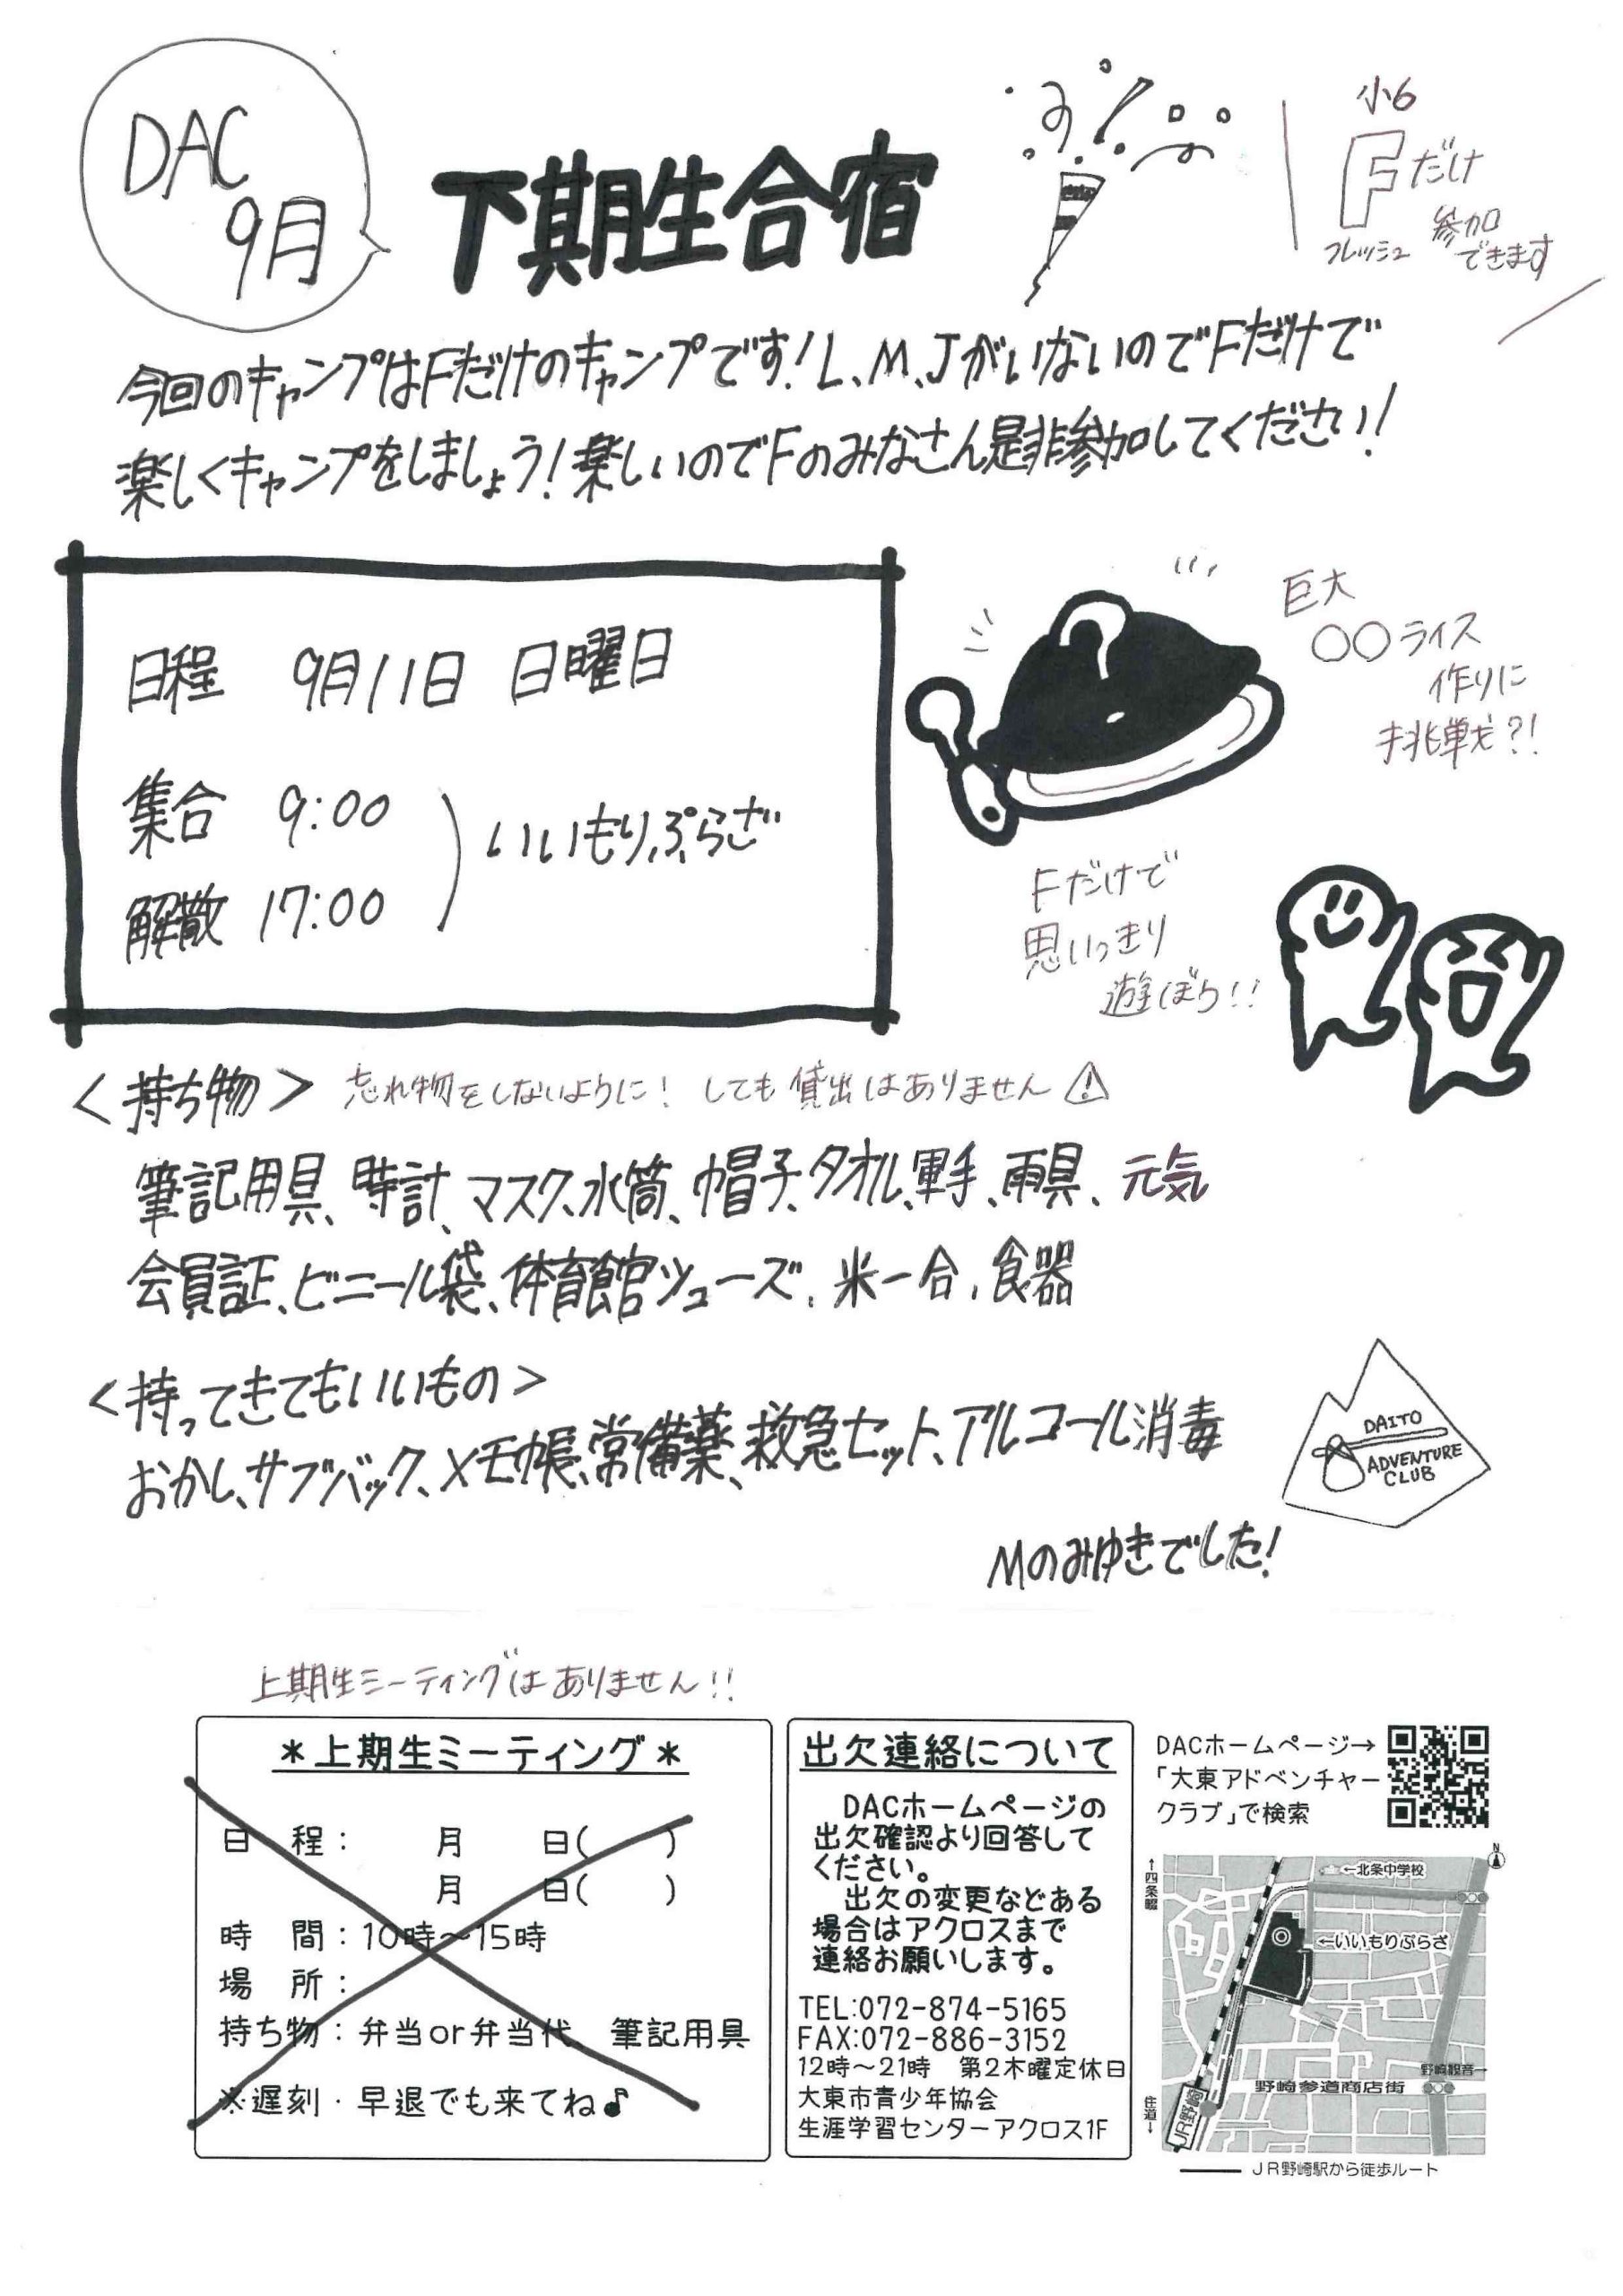 DAC
9月
下期生合宿
小6
Fだけ
フレッシュ 参加
できます
今回のキャンプはFだけのキャンプです!L、M、JがいないのでFだけで
楽しくキャンプをしましょう!楽しいのでFのみなさん是非参加してください!
日程 9月11日 日曜日
集合 9:00
いいもりぷらざ
解散 17:00
巨大
〇〇ライス
作りに
挑戦?!
Fだけで
思いっきり
遊ぼう!!
<持ち物> 忘れ物をしないように! しても貸出はありません⚠
筆記用具、時計、マスク、水筒、帽子、タオル、軍手、雨具、元気
会員証、ビニール袋、体育館シューズ、米一合、食器
<持ってきてもいいもの>
おかし、サブバック、メモ帳、常備薬、救急セット、アルコール消毒
DAITO
ADVENTURE
CLUB
Mのみゆきでした!
上期生ミーティングはありません!!
*上期生ミーティング*
日 程: 月 日( )
月 日( )
時 間:10時~15時
場 所:
持ち物:弁当or弁当代、筆記用具
※遅刻・早退でも来てね♪
出欠連絡について
DACホームページの
出欠確認より回答して
ください。
出欠の変更などある
場合はアクロスまで
連絡お願いします。
TEL:072-874-5165
FAX:072-886-3152
12時~21時 第2木曜定休日
大東市青少年協会
生涯学習センターアクロス1F
DACホームページ→
「大東アドベンチャー
クラブ」で検索
N
↑四条畷
←北条中学校
←いいもりぷらざ
野崎観音→
野崎参道商店街
住道↓
JR野崎
JR野崎駅から徒歩ルート